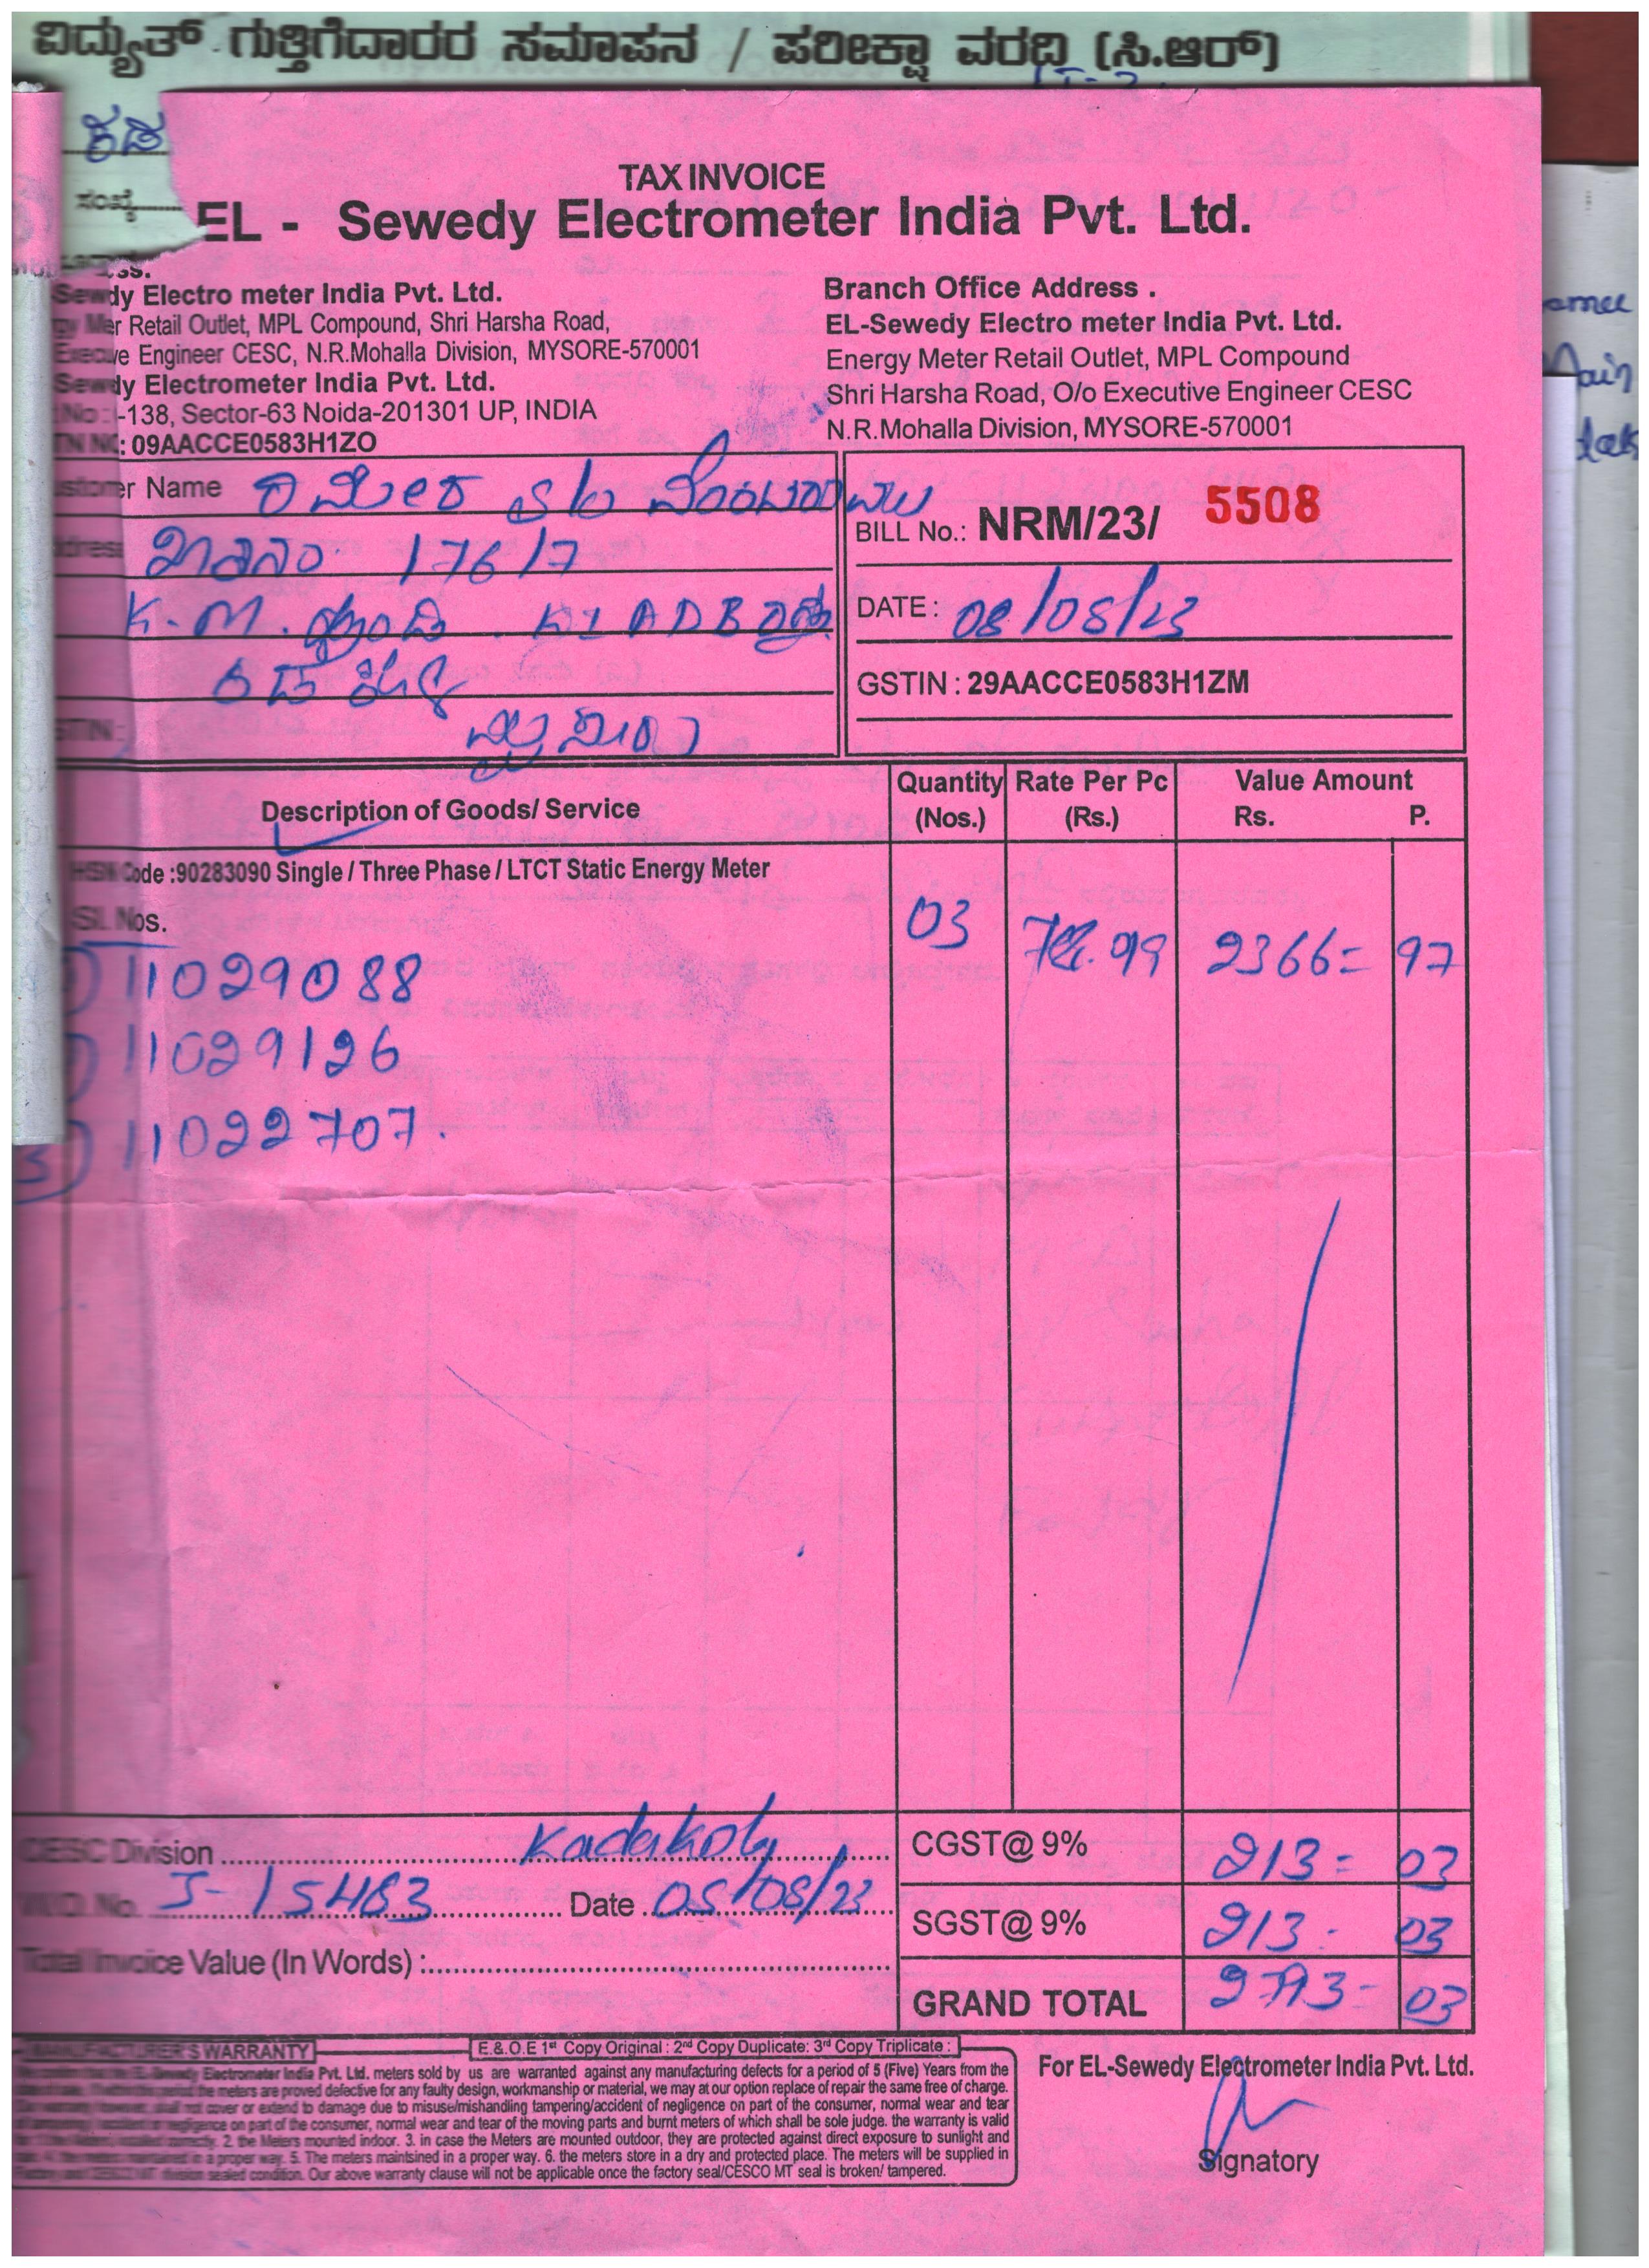 ವಿದ್ಯುತ್ ಗುತ್ತಿಗೆದಾರರ ಸಮಾಪನ / ಪರೀಕ್ಷಾ ವರದಿ (ಸಿ.ಆರ್)
ಕಡ
ಸಂಖ್ಯೆ
TAX INVOICE
EL - Sewedy Electrometer India Pvt. Ltd.
Sewedy Electro meter India Pvt. Ltd.
Retail Outlet, MPL Compound, Shri Harsha Road,
Engineer CESC, N.R.Mohalla Division, MYSORE-570001
Sewedy Electrometer India Pvt. Ltd.
-138, Sector-63 Noida-201301 UP, INDIA
: 09AACCE0583H1ZO
Branch Office Address .
EL-Sewedy Electro meter India Pvt. Ltd.
Energy Meter Retail Outlet, MPL Compound
Shri Harsha Road, O/o Executive Engineer CESC
N.R.Mohalla Division, MYSORE-570001
Customer Name S/o
Address 176/7
K.M. KIADB
GSTIN :
BILL No.: NRM/23/ 5508
DATE : 08/08/23
GSTIN : 29AACCE0583H1ZM
Description of Goods/ Service Quantity (Nos.) Rate Per Pc (Rs.) Value Amount Rs. P.
HSN Code :90283090 Single / Three Phase / LTCT Static Energy Meter
Sl. Nos.
03 2366= 97
11029088
11029126
3) 11022707.
CESC Division Kadakola
W.O. No. J-15483 Date 05/08/23
Total Invoice Value (In Words) :
CGST@ 9% 213= 03
SGST@ 9% 213- 03
GRAND TOTAL 2793- 03
MANUFACTURER'S WARRANTY
E.& O.E 1st Copy Original : 2nd Copy Duplicate: 3rd Copy Triplicate :
EL-Sewedy Electrometer India Pvt. Ltd. meters sold by us are warranted against any manufacturing defects for a period of 5 (Five) Years from the
the meters are proved defective for any faulty design, workmanship or material, we may at our option replace of repair the same free of charge.
shall not cover or extend to damage due to misuse/mishandling tampering/accident of negligence on part of the consumer, normal wear and tear
negligence on part of the consumer, normal wear and tear of the moving parts and burnt meters of which shall be sole judge. the warranty is valid
2. the Meters mounted indoor. 3. in case the Meters are mounted outdoor, they are protected against direct exposure to sunlight and
in a proper way. 5. The meters maintsined in a proper way. 6. the meters store in a dry and protected place. The meters will be supplied in
sealed condition. Our above warranty clause will not be applicable once the factory seal/CESCO MT seal is broken/ tampered.
For EL-Sewedy Electrometer India Pvt. Ltd.
Signatory